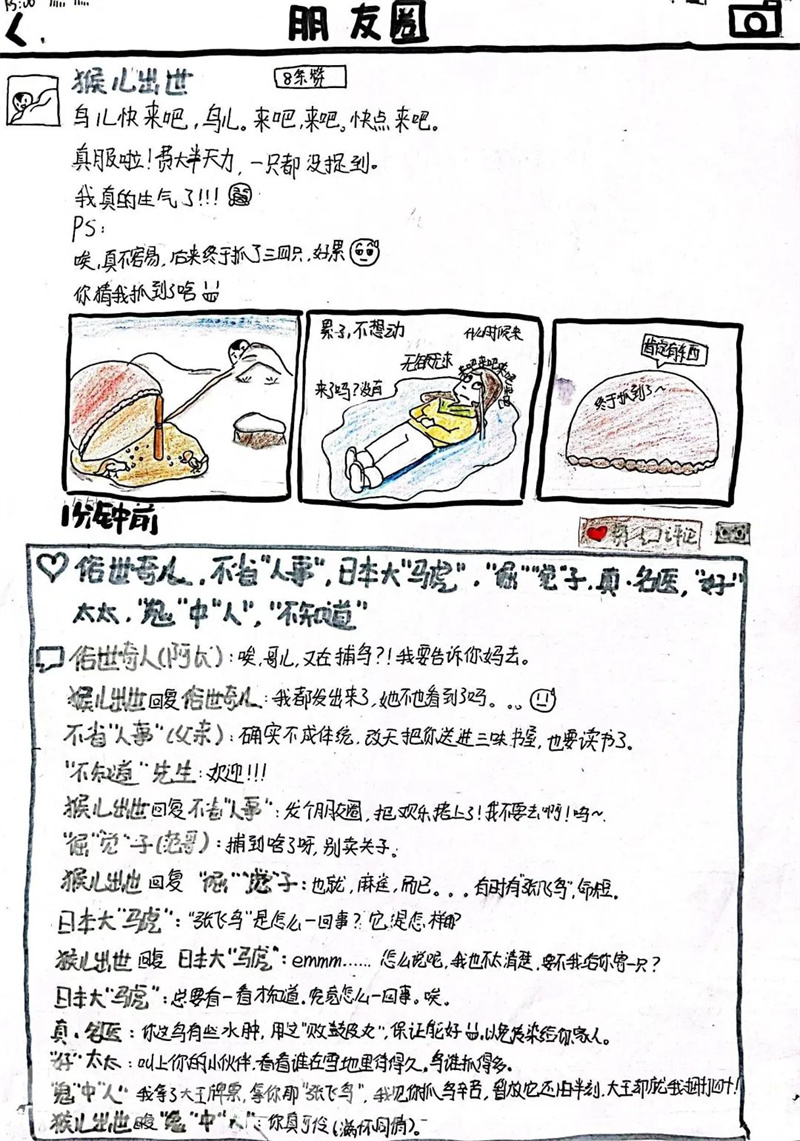 15:00
朋友圈
猴儿出世 8条赞
鸟儿快来吧,鸟儿。来吧,来吧。快点来吧。
真服啦!费大半天力,一只都没捉到。
我真的生气了!!!
PS:
唉,真不容易,后来终于抓了三四只,好累
你猜我抓到了啥
累了,不想动
什么时候来
来了吗?没有
肯定有东西
终于抓到了~
1分钟前
评论
俗世奇儿,不省"人事",日本大"马虎","掘""觉"子,真·名医,"好"
太太,"鬼"中"人","不知道"
俗世奇人(阿长):唉,哥儿,又在捕鸟?!我要告诉你妈去。
猴儿出世回复俗世奇儿:我都发出来了,她不也看到了吗。。。
不省"人事"(父亲):确实不成体统,改天把你送进三味书屋,也要读书了。
"不知道"先生:欢迎!!!
猴儿出世回复不省"人事":发个朋友圈,把欢乐搭上了!我不要去啊!呜~
"掘""觉"子(范哥):捕到啥了呀,别卖关子。
猴儿出世回复"掘""觉"子:也就,麻雀,而已。。。有时有"张飞鸟",
日本大"马虎":"张飞鸟"是怎么一回事?它是怎样的
猴儿出世回复日本大"马虎":emmm......怎么说呢,我也不太清楚,要不我给你寄一只?
日本大"马虎":总要有一看才知道,究竟怎么一回事。唉。
真·名医:你这鸟有些水肿,用这"败鼓皮丸",保让它好,以免传染给你家人。
"好"太太:叫上你的小伙伴,看看谁在雪地里待得久,鸟谁抓得多。
"鬼"中"人" 我拿了大王牌票,拿你那"张飞鸟",我见你抓鸟辛苦,暂放它还阳半刻,大王却说我捆打四十!
猴儿出世回复"鬼"中"人":你真可怜(满怀同情)。